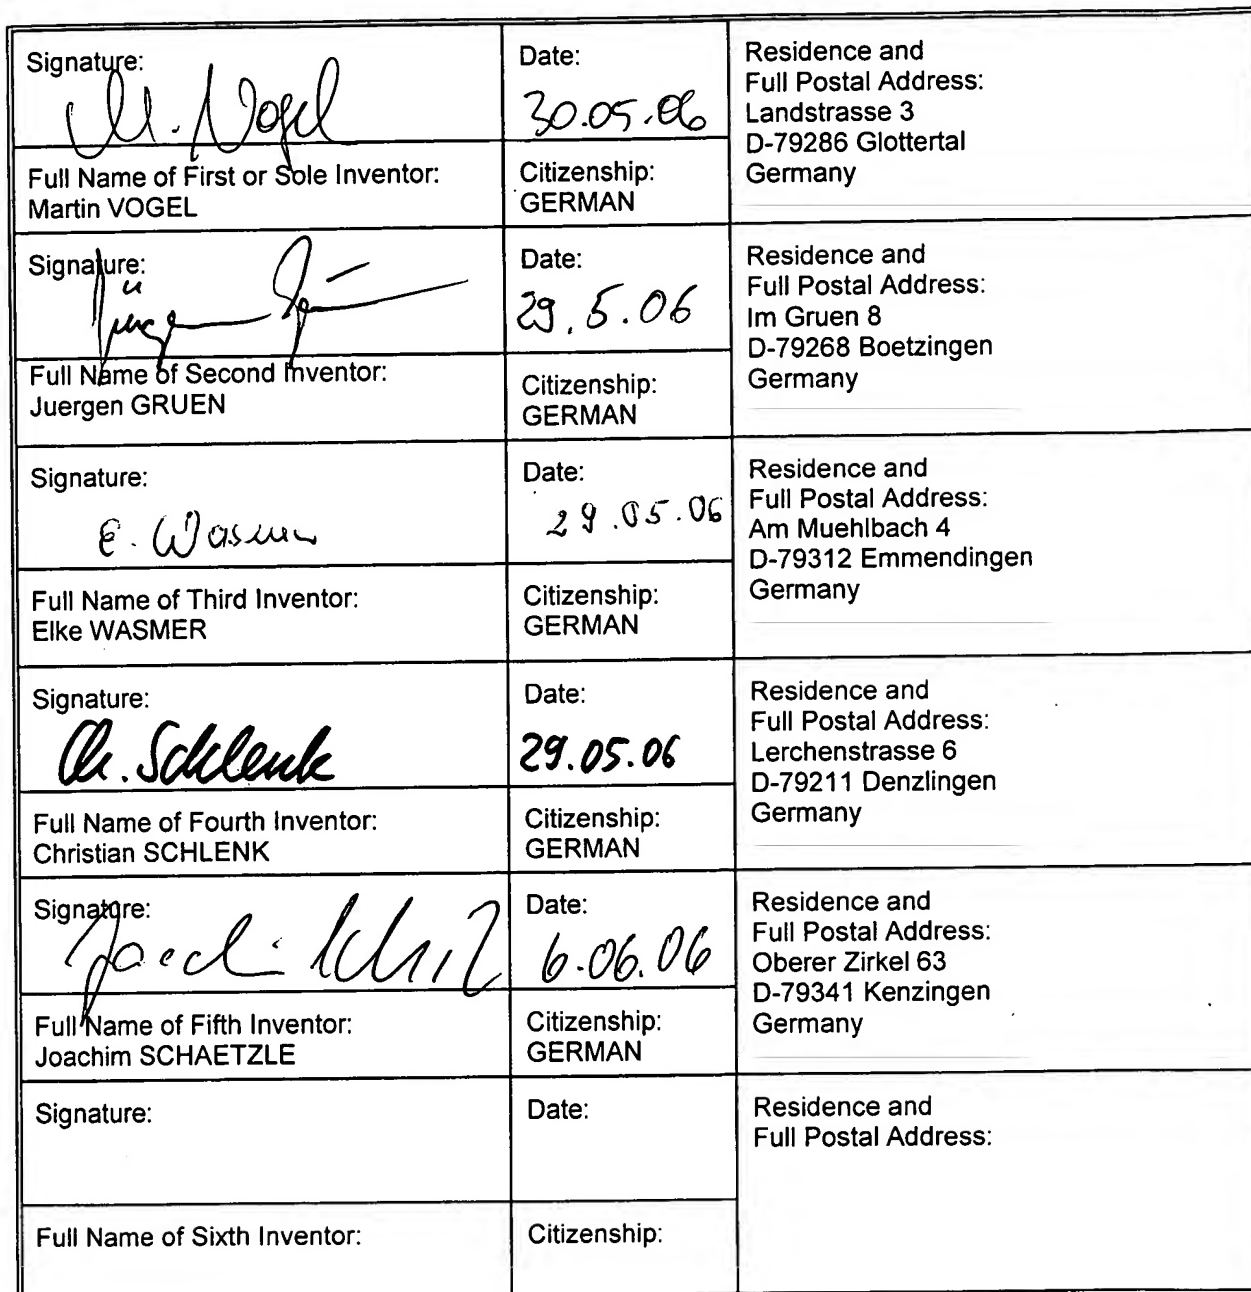 Signature:
M. Vogel
Date:
30.05.06
Residence and
Full Postal Address:
Landstrasse 3
D-79286 Glottertal
Germany
Full Name of First or Sole Inventor:
Martin VOGEL
Citizenship:
GERMAN
Signature:
Jürgen Grün
Date:
29.5.06
Residence and
Full Postal Address:
Im Gruen 8
D-79268 Boetzingen
Germany
Full Name of Second Inventor:
Juergen GRUEN
Citizenship:
GERMAN
Signature:
E. Wasmer
Date:
29.05.06
Residence and
Full Postal Address:
Am Muehlbach 4
D-79312 Emmendingen
Germany
Full Name of Third Inventor:
Elke WASMER
Citizenship:
GERMAN
Signature:
Ch. Schlenk
Date:
29.05.06
Residence and
Full Postal Address:
Lerchenstrasse 6
D-79211 Denzlingen
Germany
Full Name of Fourth Inventor:
Christian SCHLENK
Citizenship:
GERMAN
Signature:
Joachim
Date:
6.06.06
Residence and
Full Postal Address:
Oberer Zirkel 63
D-79341 Kenzingen
Germany
Full Name of Fifth Inventor:
Joachim SCHAETZLE
Citizenship:
GERMAN
Signature:
Date:
Residence and
Full Postal Address:
Full Name of Sixth Inventor:
Citizenship: